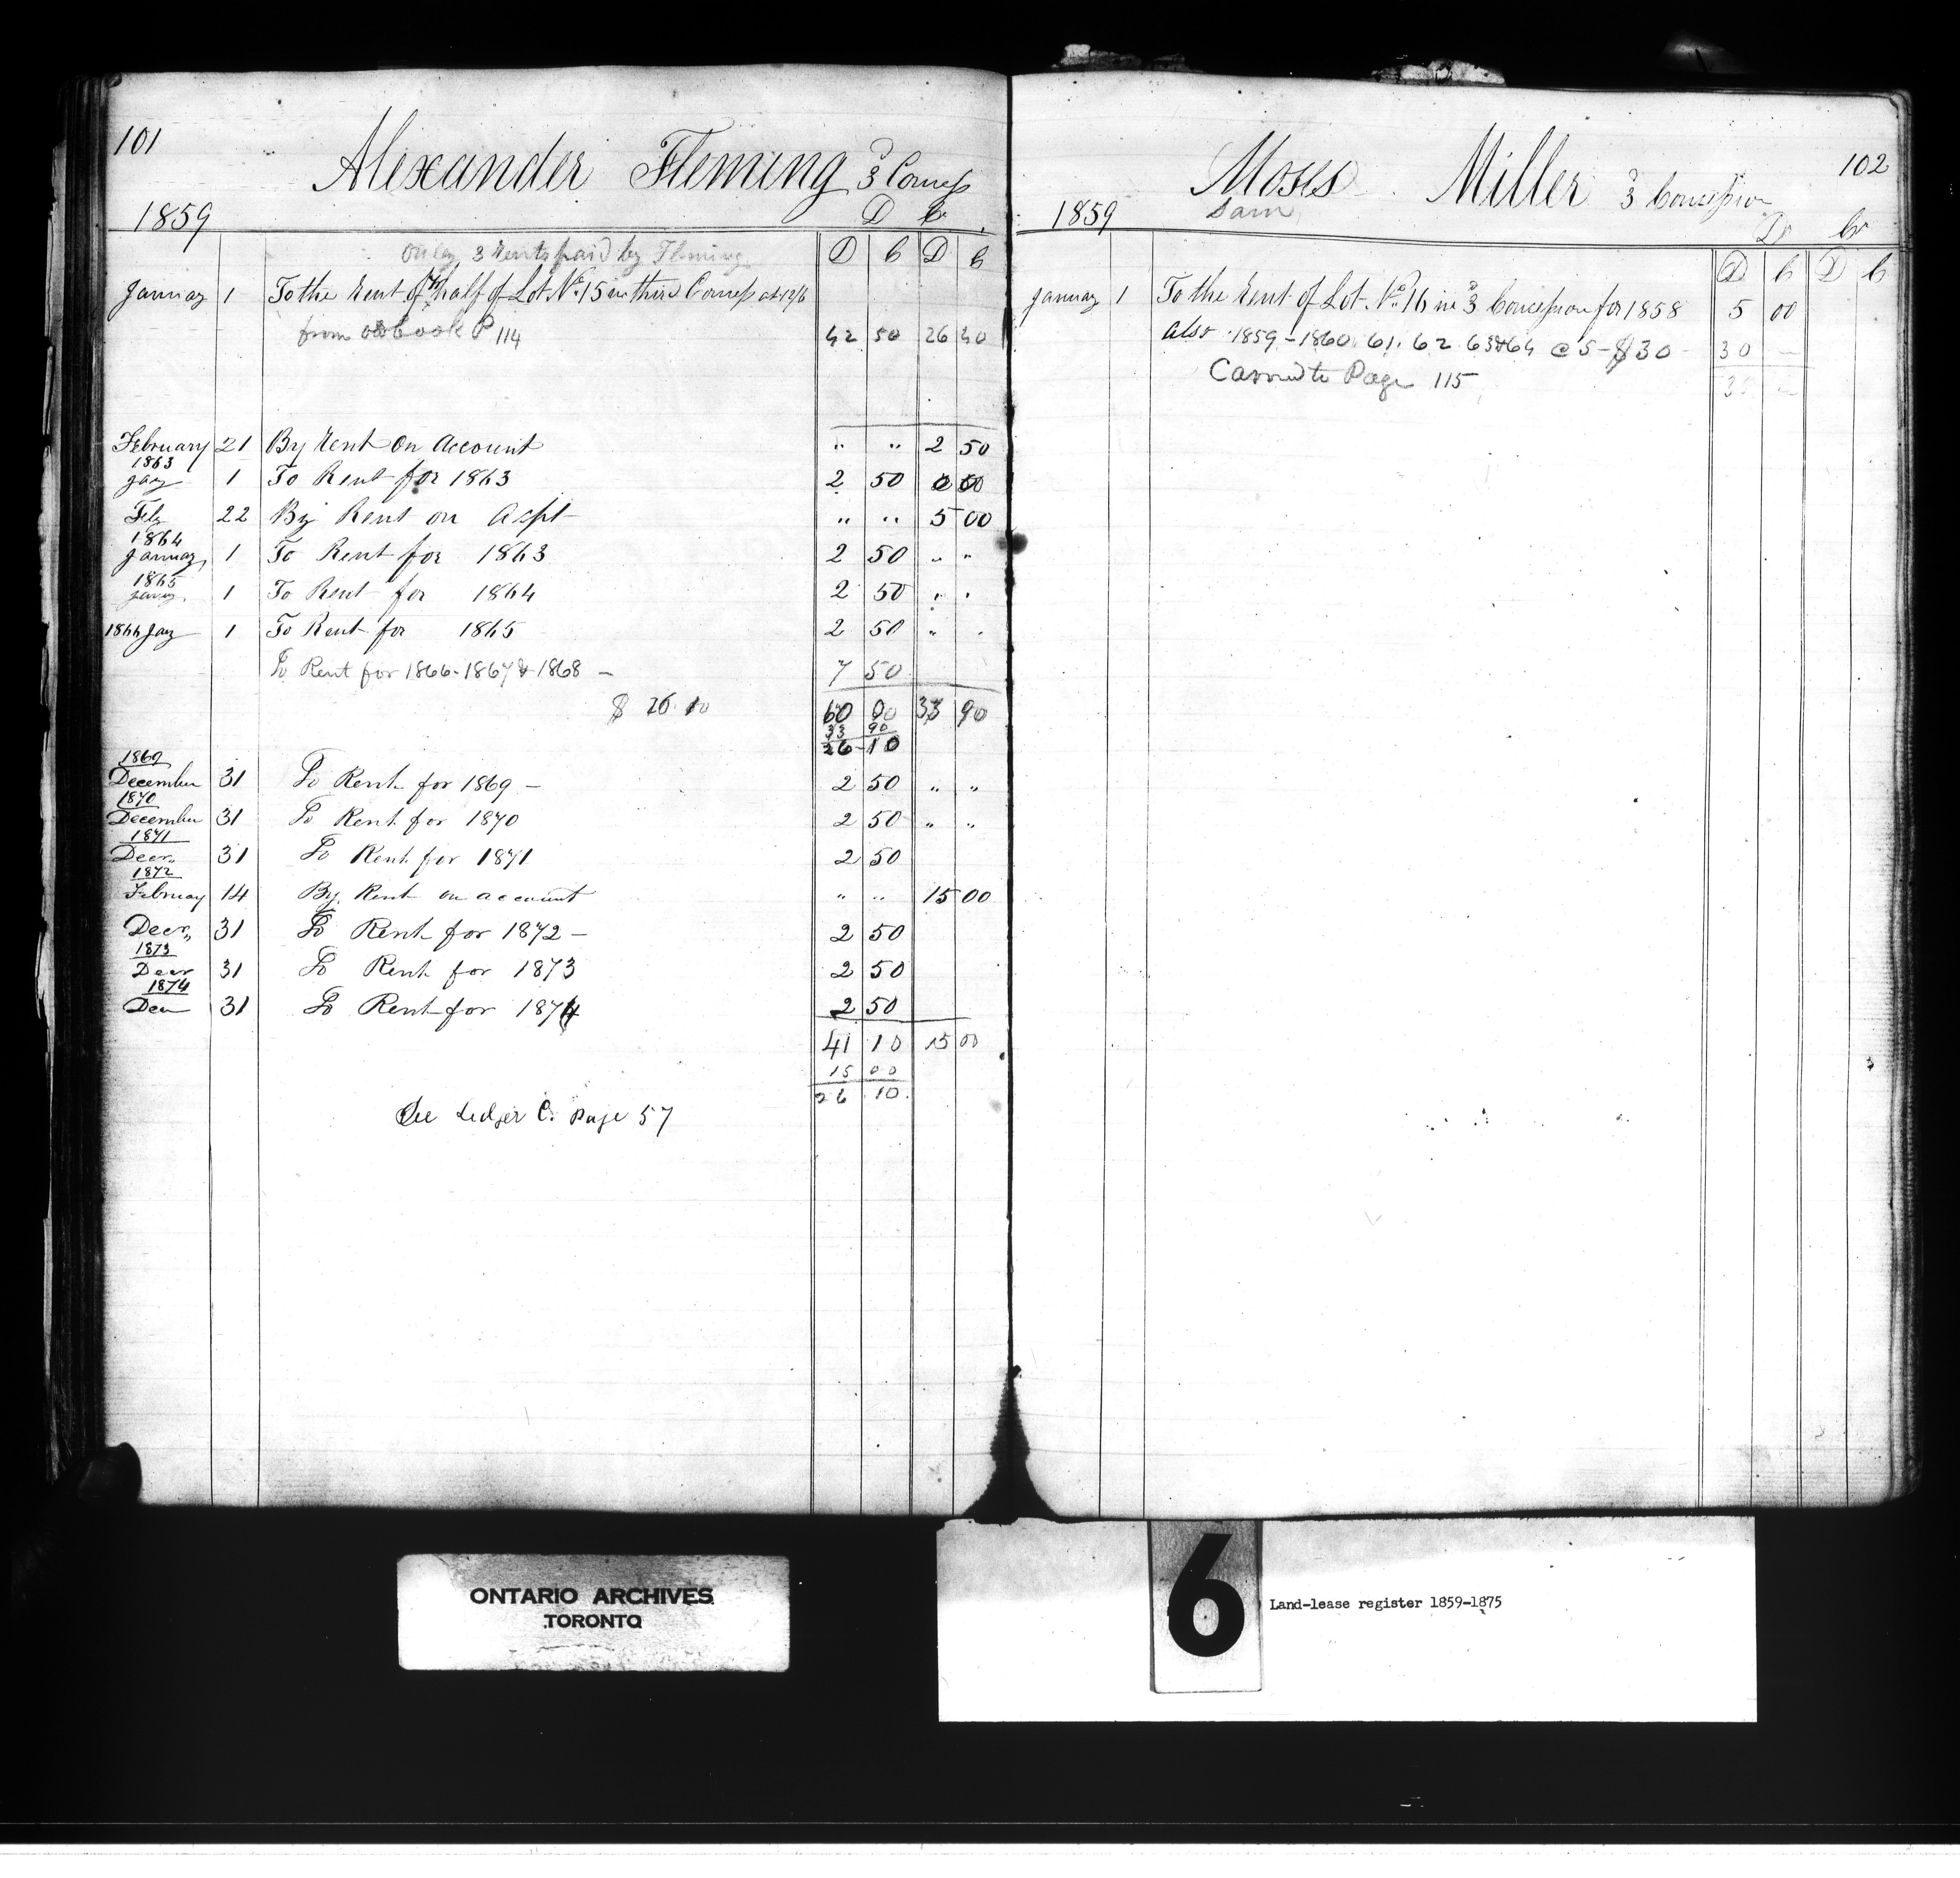 101
Alexander Fleming 3 Concess
1859 D C
only 3 rents paid by Fleming
D C D C
January 1 To the Rent of half of Lot No. 15 in third Concess at 12/6
from old book P 114 42 50 26 40
February 21 By Rent on Account " " 2 50
1863
Jay 1 To Rent for 1863 2 50
Feby 22 By Rent on Acpt " " 5 00
1864
January 1 To Rent for 1863 2 50 " "
1865
January 1 To Rent for 1864 2 50 " "
1866 Jay 1 To Rent for 1865 2 50 " "
To Rent for 1866-1867 & 1868 — 7 50
$ 26.10 60 00 33 90
33 90
26 10
1869
December 31 To Rent for 1869 — 2 50 " "
1870
December 31 To Rent for 1870 2 50 " "
1871
Decr. 31 To Rent for 1871 2 50
1872
February 14 By Rent on account " " 15 00
Decr. 31 To Rent for 1872 — 2 50
1873
Decr 31 To Rent for 1873 2 50
1874
Decr 31 To Rent for 1874 2 50
41 10 15 00
15 00
26 10
See Ledger C. Page 57
102
Moses Miller 3 Concession
Sam
1859 Dr Cr
D C D C
January 1 To the Rent of Lot No. 16 in 3 Concession for 1858 5 00
also 1859-1860. 61. 62. 63 & 64 @ 5 - $30 - 30 —
Carried to Page 115 35 —
ONTARIO ARCHIVES
TORONTO
6
Land-lease register 1859-1875